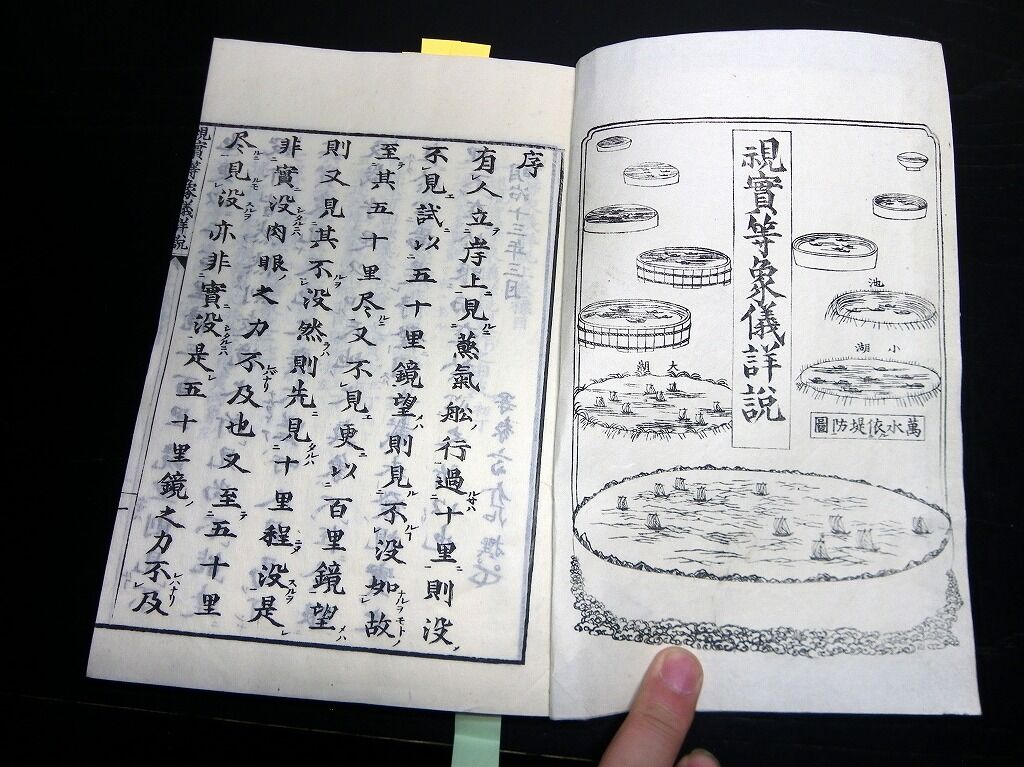 視實等象儀詳說
池
小湖
大湖
萬水依堤防圖
序
有人立岸上見蒸氣舩行過十里則没
不見試以五十里鏡望則見不没如故
至其五十里尽又不見更以百里鏡望
則又見其不没然則先見十里程没是
非實没肉眼之力不及也又至五十里
尽見没亦非實没是五十里鏡之力不及
視實等象儀詳說